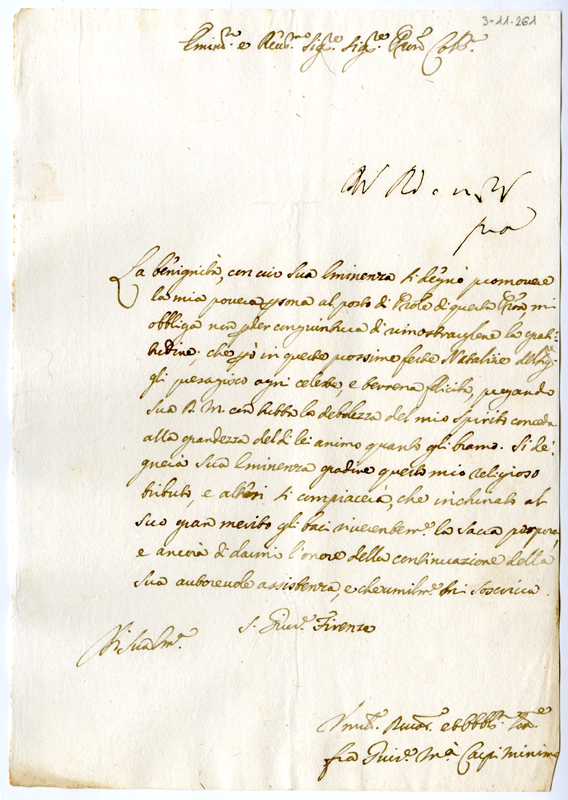 3-11-261
Emin.e e Rev.mo Sig.re Sig.re Pron. Coll.
La benignità, con cui Sua Eminenza si degnò promovere
la mia povera psona al posto di Prole di questa Pron, mi
obbliga non p per congiuntura di rimostrargliene la grati-
tudine, che pò in queste prossime feste Natalizie
gli presagisco ogni celeste, e terrena felicità, pregando
sua D. M. con tutta la debolezza del mio spirito conceda
alla grandezza del di lei animo quanto gli bramo. Si de-
gnerà Sua Eminenza gradire questo mio religioso
tributo, e altresì si compiacerà, che inchinato al
suo gran merito gli baci riverentem.e la sacra porpora,
e ancora di darmi l'onore della continuazione della
sua autorevole assistenza, e che umilm.e mi soscriva.
Di Sua Em.a
S. Giu.e Firenze
Umil. Devot. e obbl.
fra Giu.e M.a Carpi Minimo